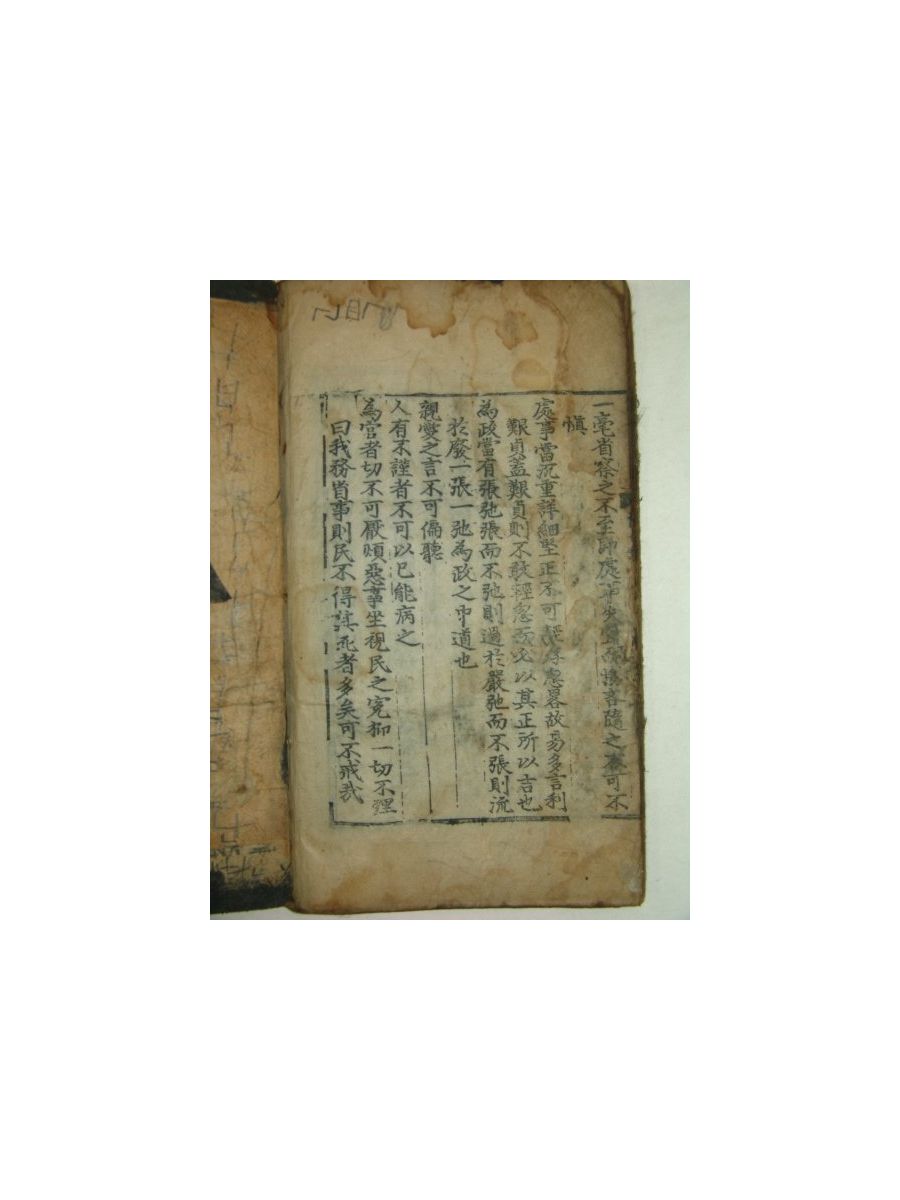 一毫省察之不至即處事失宜而悔吝隨之不可不
慎
處事當沉重詳細堅正不可輕浮忽畧故易多言利
艱貞蓋艱貞則不敢輕忽而必以其正所以吉也
為政當有張弛張而不弛則過於嚴弛而不張則流
於廢一張一弛為政之中道也
親愛之言不可偏聽
人有不謹者不可以己能病之
為官者切不可厭煩惡事坐視民之冤抑一切不理
曰我務省事則民不得其死者多矣可不戒哉